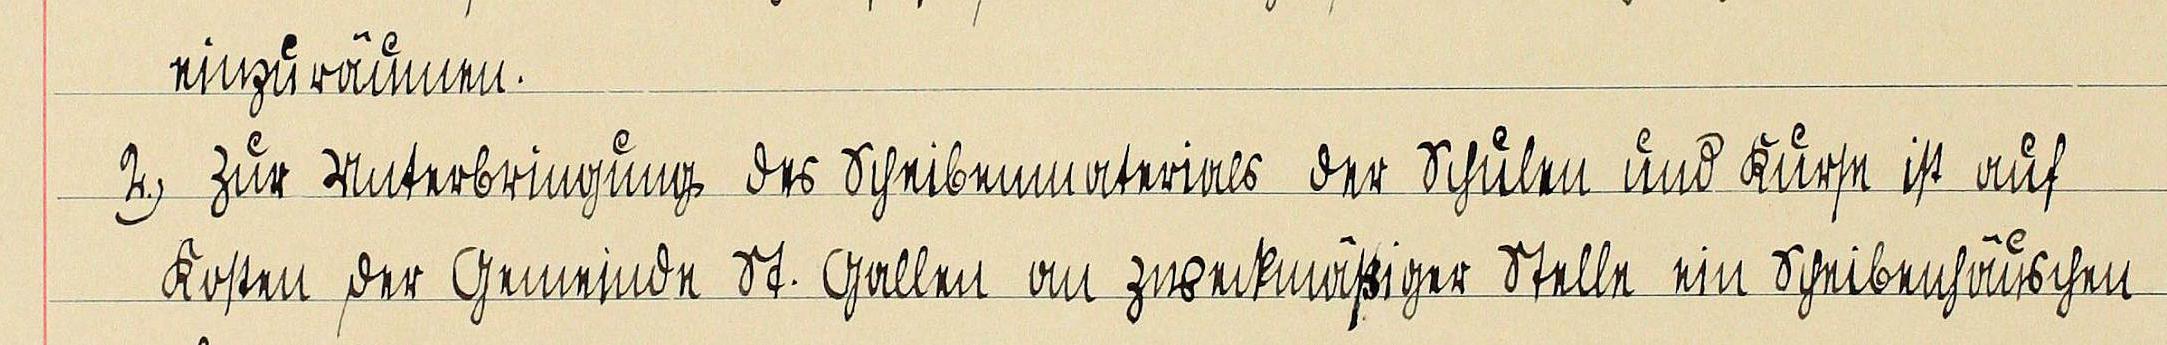 einzuräumen.
2.) Zur Unterbringung des Scheibenmaterials der Schulen und Kurse ist auf
Kosten der Gemeinde St. Gallen an zweckmäßiger Stelle ein Scheibenhäuschen